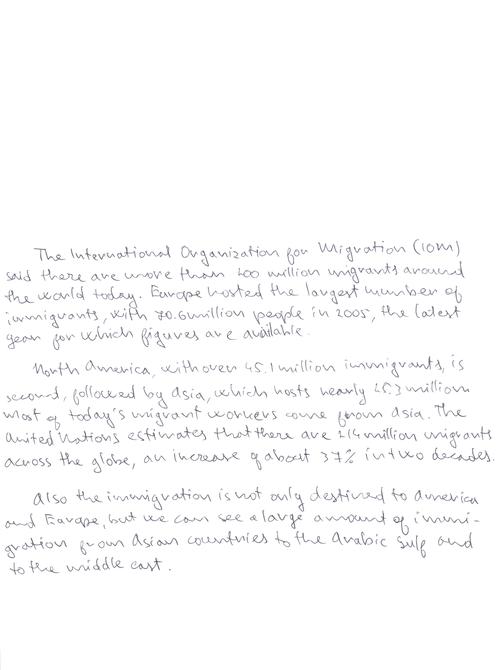 The International Organization for Migration (IOM)
said there are more than 200 million migrants around
the world today. Europe hosted the largest number of
immigrants, with 70.6 million people in 2005, the latest
year for which figures are available.
North America, with over 45.1 million immigrants, is
second, followed by Asia, which hosts nearly 25.3 million
most of today's migrant workers come from Asia. The
United Nations estimates that there are 214 million migrants
across the globe, an increase of about 37% in two decades.
Also the immigration is not only destined to America
and Europe, but we can see a large amount of immi-
gration from Asian countries to the Arabic Gulf and
to the middle east.